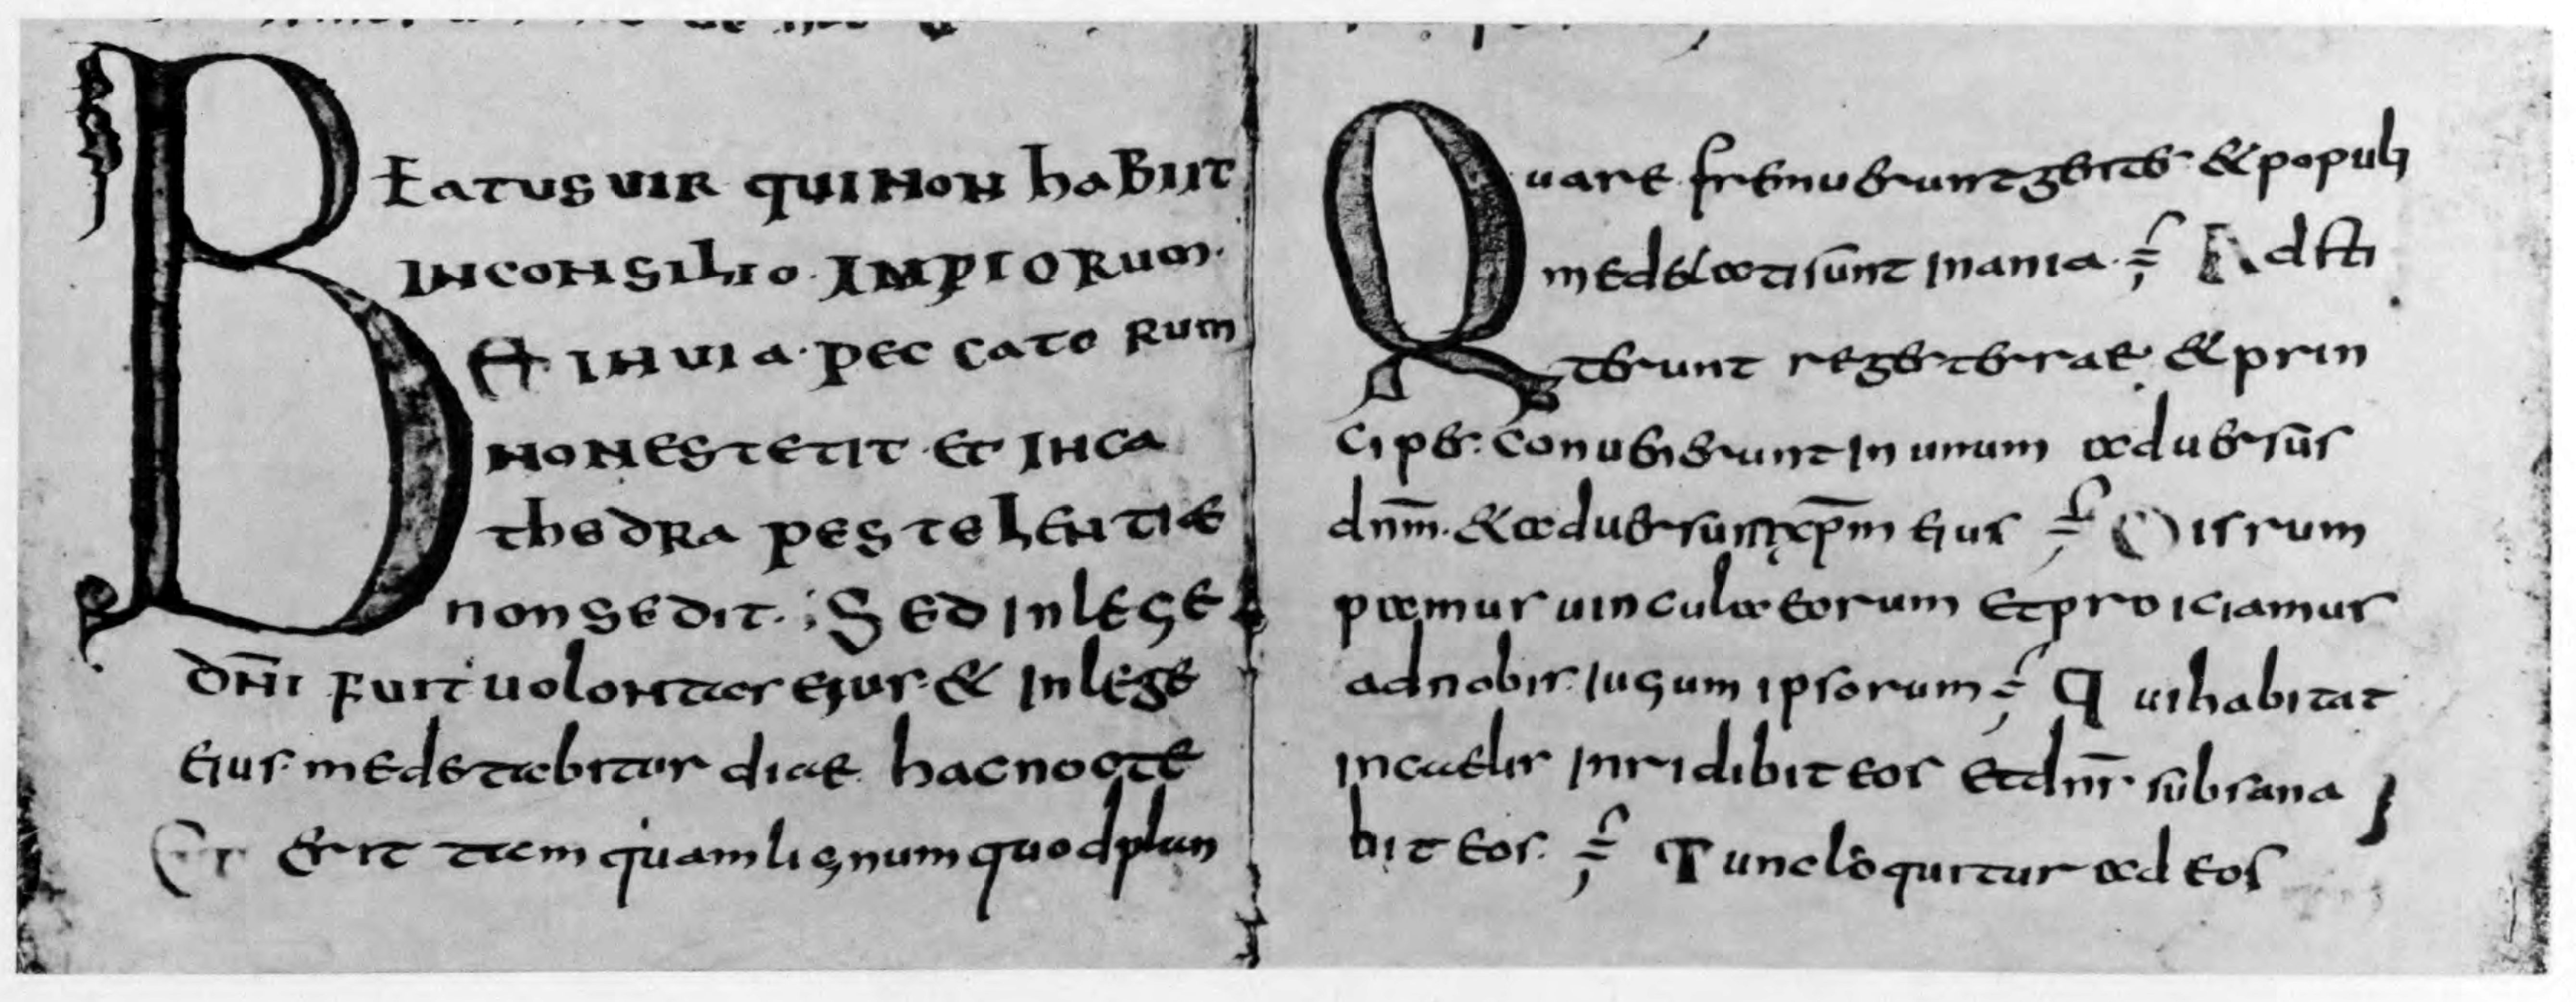 BEATUS VIR QUI NON haBIIT
IN CONSILIO IMPIORUM.
ET IN VIA PECCATORUM
NON ESTETIT ET IN CA
thEDRA PESTELENTIAE
NON SEDIT.; SED IN LEGE
DN̄I FUIT UOLONTAS EIUS & IN LEGE
EIUS MEDETABITUR DIAE hAC NOCTE
ET ERIT TAM QUAM LIGNUM QUOD PLAN
Quare fremuerunt gentes & populi
medetati sunt inania. Adsti
terunt reges terrae & prin
cipes. conuenerunt in unum aduersus
dn̄m. & aduersus xp̄m eius Disrum
pamus uincula eorum et proiciamus
ad nobis iugum ipsorum Qui habitat
in caelis inridibit eos et dn̄s subsana
bit eos. Tunc loquitur ad eos